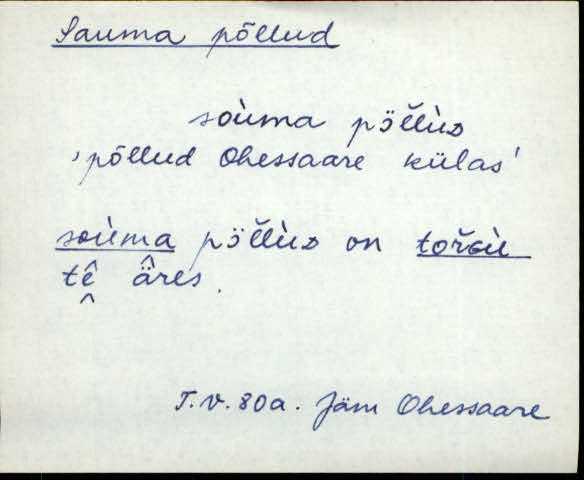 Sauma põllud
soùma pö̆l̆lùᴅ
'põllud Ohessaare külas'
soùma pö̆l̆lùᴅ on tor̆ɢù
tḙ̂ ä̂res.
T.V. 80a. Jäm Ohessaare